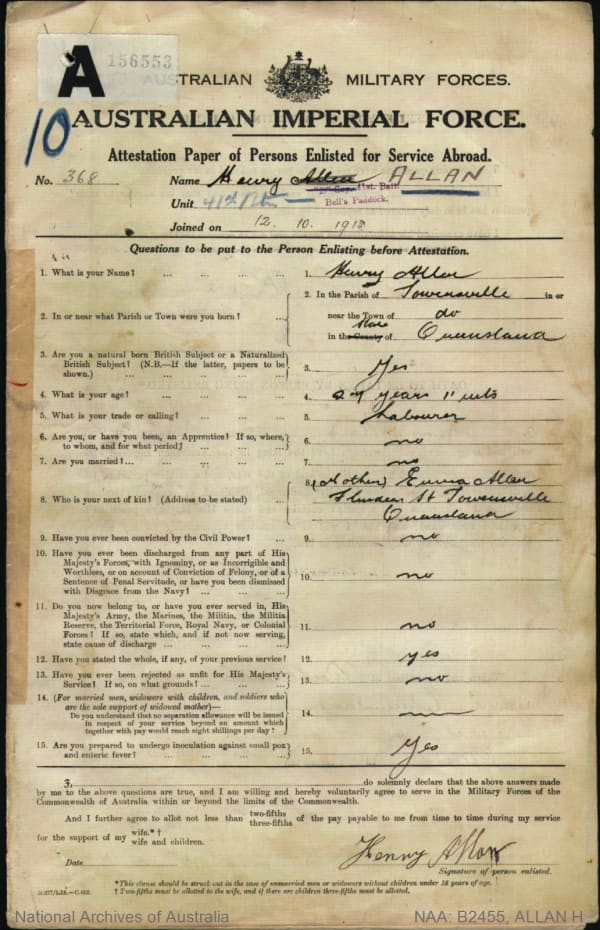 A 156553
AUSTRALIAN MILITARY FORCES.
10
AUSTRALIAN IMPERIAL FORCE.
Attestation Paper of Persons Enlisted for Service Abroad.
No. 368 Name Henry Allen ALLAN
41st Batt
Unit 41st Btn Bell's Paddock.
Joined on 12. 10. 1915
Questions to be put to the Person Enlisting before Attestation.
1. What is your Name? ... ... ... ... 1. Henry Allan
2. In or near what Parish or Town were you born? ... 2. In the Parish of Townsville in or
near the Town of do
State
in the County of Queensland
3. Are you a natural born British Subject or a Naturalized
British Subject? (N.B.—If the latter, papers to be
shown.) ... ... ... ... 3. Yes
4. What is your age? ... ... ... ... 4. 27 years 11 mts
5. What is your trade or calling? ... ... ... 5. Labourer
6. Are you, or have you been, an Apprentice? If so, where,
to whom, and for what period? ... ... ... 6. no
7. Are you married?... ... ... ... ... 7. no
8. Who is your next of kin? (Address to be stated) ... 8. (Mother) Emma Allan
Flinders St Townsville
Queensland
9. Have you ever been convicted by the Civil Power? ... 9. no
10. Have you ever been discharged from any part of His
Majesty's Forces, with Ignominy, or as Incorrigible and
Worthless, or on account of Conviction of Felony, or of a
Sentence of Penal Servitude, or have you been dismissed
with Disgrace from the Navy? ... ... ... 10. no
11. Do you now belong to, or have you ever served in, His
Majesty's Army, the Marines, the Militia, the Militia
Reserve, the Territorial Force, Royal Navy, or Colonial
Forces? If so, state which, and if not now serving,
state cause of discharge ... ... ... ... 11. no
12. Have you stated the whole, if any, of your previous service? 12. yes
13. Have you ever been rejected as unfit for His Majesty's
Service? If so, on what grounds? ... ... ... 13. no
14. (For married men, widowers with children, and soldiers who
are the sole support of widowed mother)—
Do you understand that no separation allowance will be issued
in respect of your service beyond an amount which
together with pay would reach eight shillings per day? 14. —
15. Are you prepared to undergo inoculation against small pox
and enteric fever? ... ... ... ... 15. Yes
I, do solemnly declare that the above answers made
by me to the above questions are true, and I am willing and hereby voluntarily agree to serve in the Military Forces of the
Commonwealth of Australia within or beyond the limits of the Commonwealth.
And I further agree to allot not less than two-fifths three-fifths of the pay payable to me from time to time during my service
for the support of my wife.*† wife and children.
Date Henry Allan
Signature of person enlisted.
*This clause should be struck out in the case of unmarried men or widowers without children under 18 years of age.
† Two-fifths must be allotted to the wife, and if there are children three-fifths must be allotted.
National Archives of Australia NAA: B2455, ALLAN H